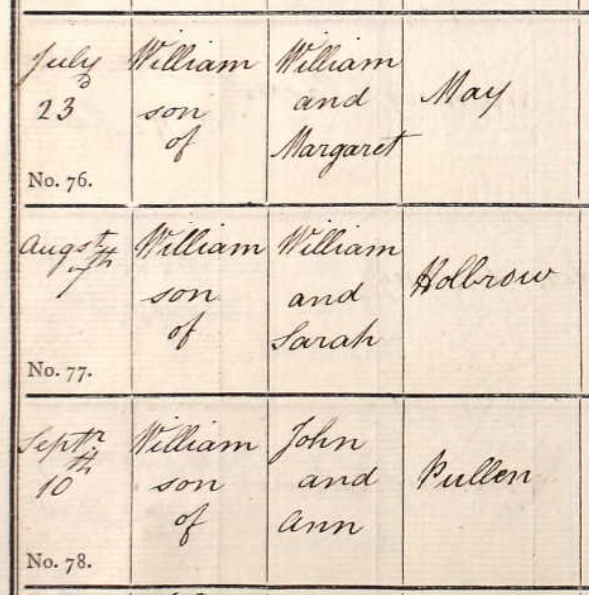 July
23d
No. 76.
William
son
of
William
and
Margaret
May
Augst
7th
No. 77.
William
son
of
William
and
Sarah
Holbrow
Septr
10th
No. 78.
William
son
of
John
and
Ann
Pullen